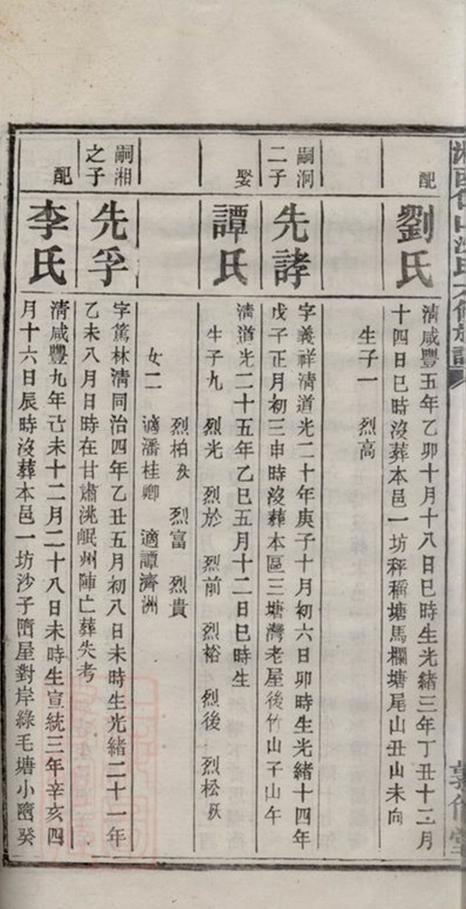 配
劉氏
清咸豐五年乙卯十月十八日巳時生光緒三年丁丑十二月
十四日巳時沒葬本邑一坊秤稻塘馬欄塘尾山丑山未向
生子一 烈高
嗣洞
二子
先諄
字義祥清道光二十年庚子十月初六日卯時生光緒十四年
戊子正月初三申時沒葬本區三塘灣老屋後竹山子山午
娶
譚氏
清道光二十五年乙巳五月十二日巳時生
生子九 烈光 烈於 烈前 烈裕 烈後 烈松殀
烈柏殀 烈富 烈貴
女二 適潘桂卿 適譚濟洲
嗣湘
之子
先孚
字篤林清同治四年乙丑五月初八日未時生光緒二十一年
乙未八月日時在甘肅洮岷州陣亡葬失考
配
李氏
清咸豐九年己未十二月二十八日未時生宣統三年辛亥四
月十六日辰時沒葬本邑一坊沙子𡐓屋對岸綠毛塘小𡐓癸